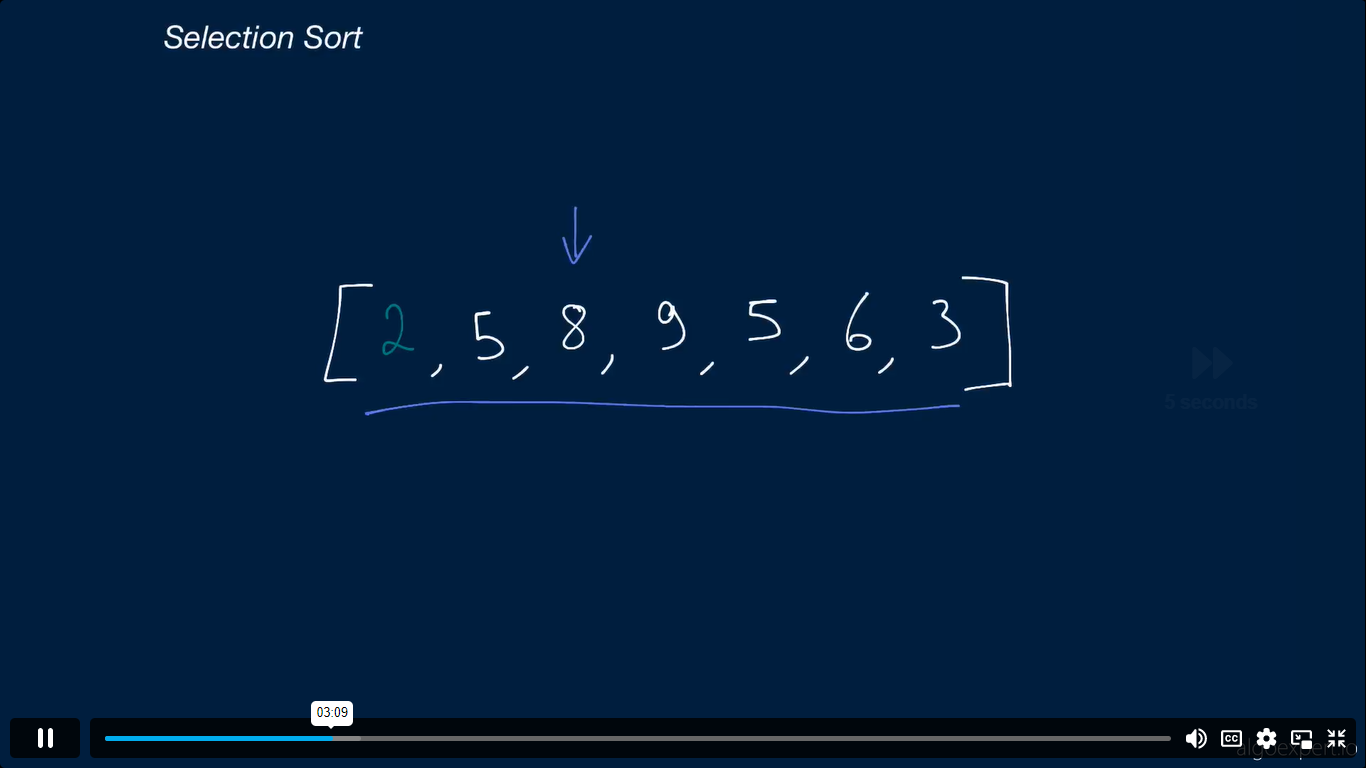 Selection Sort
[2, 5, 8, 9, 5, 6, 3]
5 seconds
03:09
CC
algoexpert.io